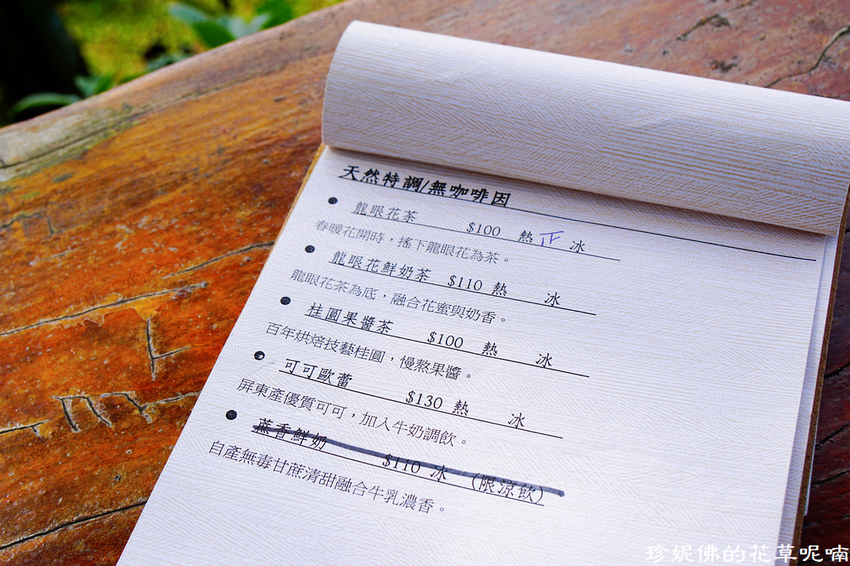 天然特調/無咖啡因
龍眼花茶 $100 熱 正 冰
春暖花開時,搖下龍眼花為茶。
龍眼花鮮奶茶 $110 熱 冰
龍眼花茶為底,融合花蜜與奶香。
桂圓果醬茶 $100 熱 冰
百年烘焙技藝桂圓,慢熬果醬。
可可歐蕾 $130 熱 冰
屏東產優質可可,加入牛奶調飲。
蔗香鮮奶 $110 冰 (限涼飲)
自產無毒甘蔗清甜融合牛乳濃香。
珍妮佛的花草呢喃